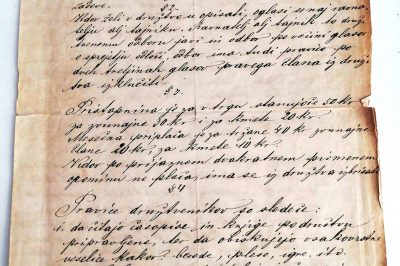 zabave.
§ 2.
Kdor želi v društvo vpisati, oglasi se naj ravna-
telju ali tajniku. Ravnatelj ali tajnik to druš-
tvenemu odboru javi in odbor po večini glasov
o sprejetju odloči, odbor ima tudi pravico po
dveh tretjinah glasov pravega člana iz druš-
tva izključiti.
§ 3.
Pristopnina je za v trgu stanujoče 50 kr
za zvunajne 30 kr i za kmete 20 kr
Mesečna priplača je za tržane 40 kr zvunajne
člane 20 kr, za kmete 10 kr.
Kdor po prijaznem dvakratnem pismenem
opominu ne plača, ima se iz društva izbrisati
§ 4
Pravice družtvenikov so sledeče:
1. da čitajo časopise in knjige po društvu
pripravljene, ter da obiskujejo vsakovrstne
veselice kakor besede, plese, igre, itd.